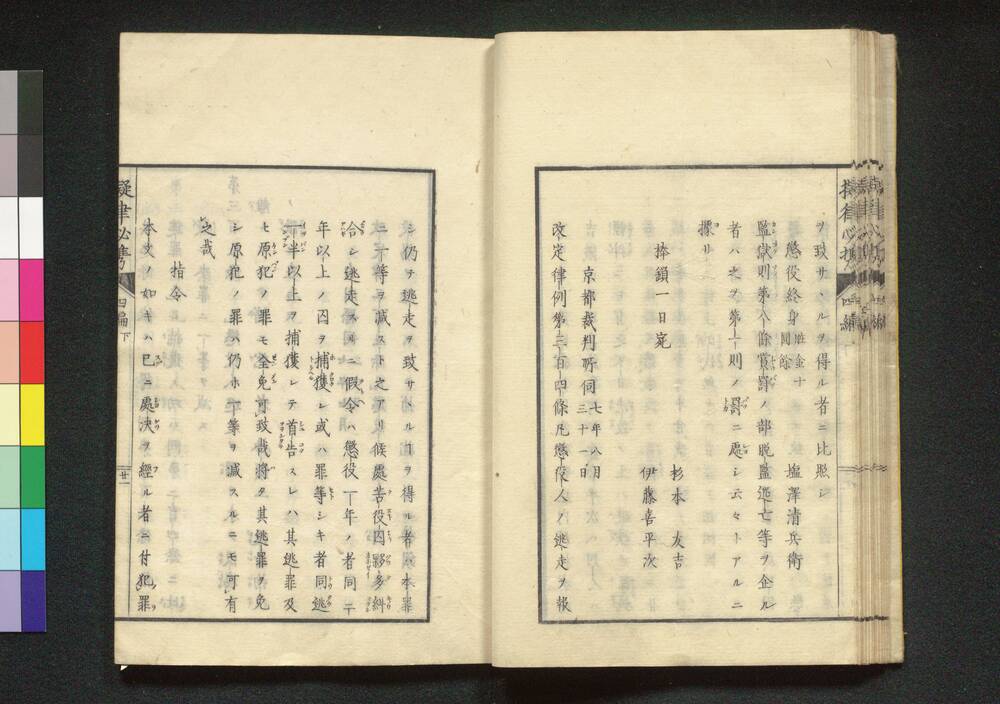 ヲ致サヾルヲ得ル者ニ比照シ
懲役終身
塩澤清兵衛
監獄則第八條賞罰ノ部脱監逃亡等ヲ企ル
者ハ之ヲ第十則ノ罰ニ處シ云々トアルニ
據リ
捧鎖一日宛
杉本友吉
伊藤喜平次
京都裁判所伺
七年八月
三十一日
改定律例第三百四條凡懲役人ノ逃走ヲ報
シ仍テ逃走ヲ致サヾルヿヲ得ル者ハ本罪
ニ一等ヲ減スト之アリ候處苦役囚夥多糾
合シ逃走スルニ假令ハ懲役一年ノ者同二
年以上ノ囚ヲ捕獲シ或ハ罪等シキ者同逃
一半以上ヲ捕獲シテ首告スレハ其逃罪及
ヒ原犯ノ罪モ全免可致哉將タ其逃罪ヲ免
シ原犯ノ罪ハ仍ホ一等ヲ減スルニモ可有
之哉
指令
本文ノ如キハ已ニ處決ヲ經ル者ニ付犯罪
擬律必携
四編下
廿一